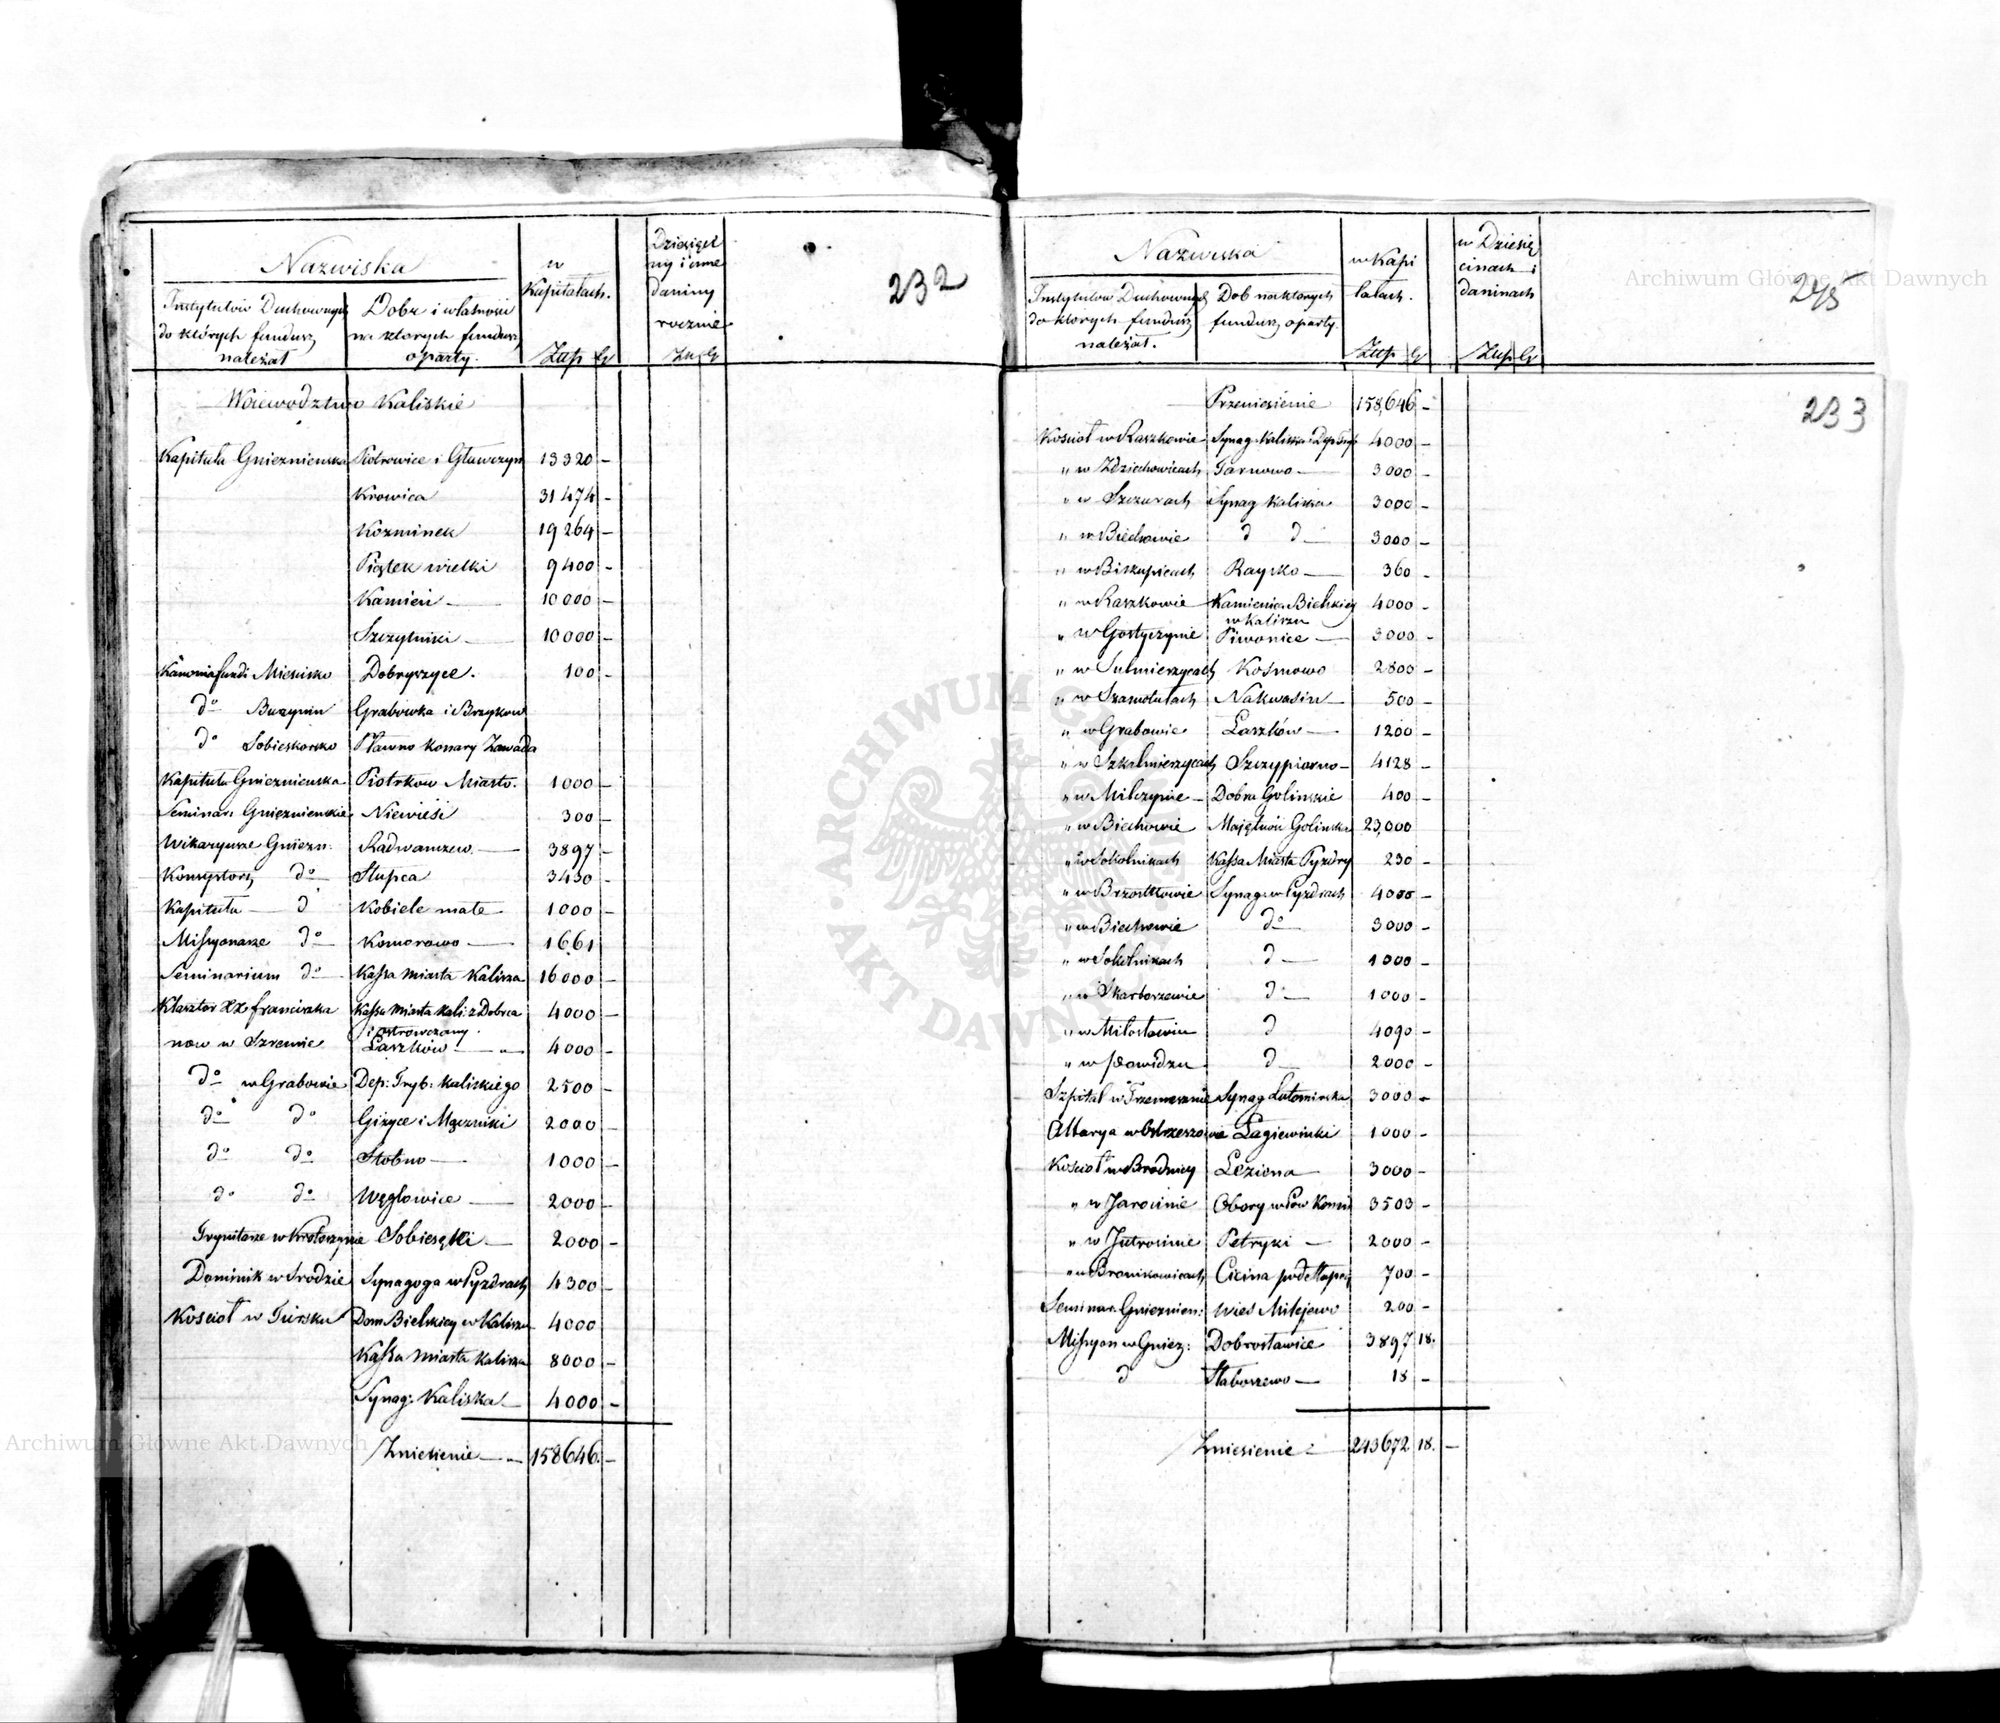 232
Nazwiska
w Kapitałach.
Dziesięci
ny i inne
daniny
rocznie
Instytutów Duchownych
do których fundusz
należał
Dobr i własności
na których fundusz
oparty.
Złtp gr
Zł gr
Woiewodztwo Kaliskie
Kapituła Gnieznienska Piotrowice i Głuwczyn 13320 –
Krowica 31474 –
Kozminek 19264 –
Piątek wielki 9400 –
Kamień 10000 –
Szczytniki 10000 –
Kanonia fundi Miesisko Dobryszyce. 100 –
do Buzynin Grabowka i Brzykow
do Sobieskorsko Pławno Konary Zawada
Kapituła Gnieznienska Piotrkow Miasto. 1000 –
Seminar: Gnieznienskie Niewieśi 300 –
Wikaryusze Gniezn: Radwanczew 3897 –
Konsystorz do Słupca 3430 –
Kapituła d Kobiele małe 1000 –
Missyonarze do Komorowo 1661
Seminarium do Kassa Miasta Kalisza 16000 –
Klasztor XX Franciszka Kassa Miasta Kali: z Dobrca 4000 –
i Ostrowczany.
now w Szremie Laszków 4000 –
do w Grabowie Dep: Tryb: Kaliskiego 2500 –
do do Giżyce i Mączniki 2000 –
do do Stobno 1000 –
do do Węglowice 2000 –
Trynitarze w Krotoszynie Sobiesęki 2000 –
Dominik w Srodzie Synagoga w Pyzdrach 4300 –
Kościoł w Tursku Dom Bielskiey w Kaliszu 4000
Kassa Miasta Kalisza 8000 –
Synag: Kaliska 4000 –
Zniesienie 158646. –
Archiwum Główne Akt Dawnych
Nazwiska
w Kapi
tałach.
w Dziesię
cinach i
daninach
Instytutów Duchownych
do ktorych fundusz
należał.
Dob na ktorych
fundusz oparty.
Złtp gr
Złtp gr
Archiwum Główne Akt Dawnych
233
Przeniesienie 158,646 –
Kościoł w Raszkowie Synag. Kaliska 4000 –
" w Zdziechowicach Tarnowo 3000 –
" w Szczurach Synag Kaliska 3000 –
" w Biechowie d d 3000 –
" w Biskupicach Raysko 360 –
" w Raszkowie Kamienica Bielskiey 4000 –
w Kaliszu
" w Gostyczynie Piwonice 3000 –
" w Sulmierzycach Kosmowo 2800 –
" w Szamotułach Nakwasin 500 –
" w Grabowie Laszków 1200 –
" w Szkalmierzycach Szczypiorno 4128 –
" w Milczynie Dobra Golinskie 400 –
" w Biechowie Majętność Golinska 23,000
" w Sokolnikach Kassa Miasta Pyzdry 230 –
" w Brzostkowie Synag: w Pyzdrach 4000 –
" w Biechowie do 3000 –
" w Sokolnikach d 1000 –
" w Skarborzewie d 1000 –
" w Miłosławiu d 4090 –
" d 2000 –
Szpital w Trzemesznie Synag Lutomirska 3000 –
Altarya w Ostrzeszowie Łagiewniki 1000 –
Kościoł w Brodnicy Leziona 3000 –
" w Jarocinie Obory w Pow Konin 3503 –
" w Jutrosinie Petryki 2000 –
" w Bronikowicach Cicina 700 –
Seminar. Gnieznien: Wieś Milejewo 200 –
Missyon w Gniez: Dobrosławice 3897 18.
d Słaboszewo 18 –
Zniesienie 243672 18. –
ARCHIWUM GŁÓWNE AKT DAWNYCH